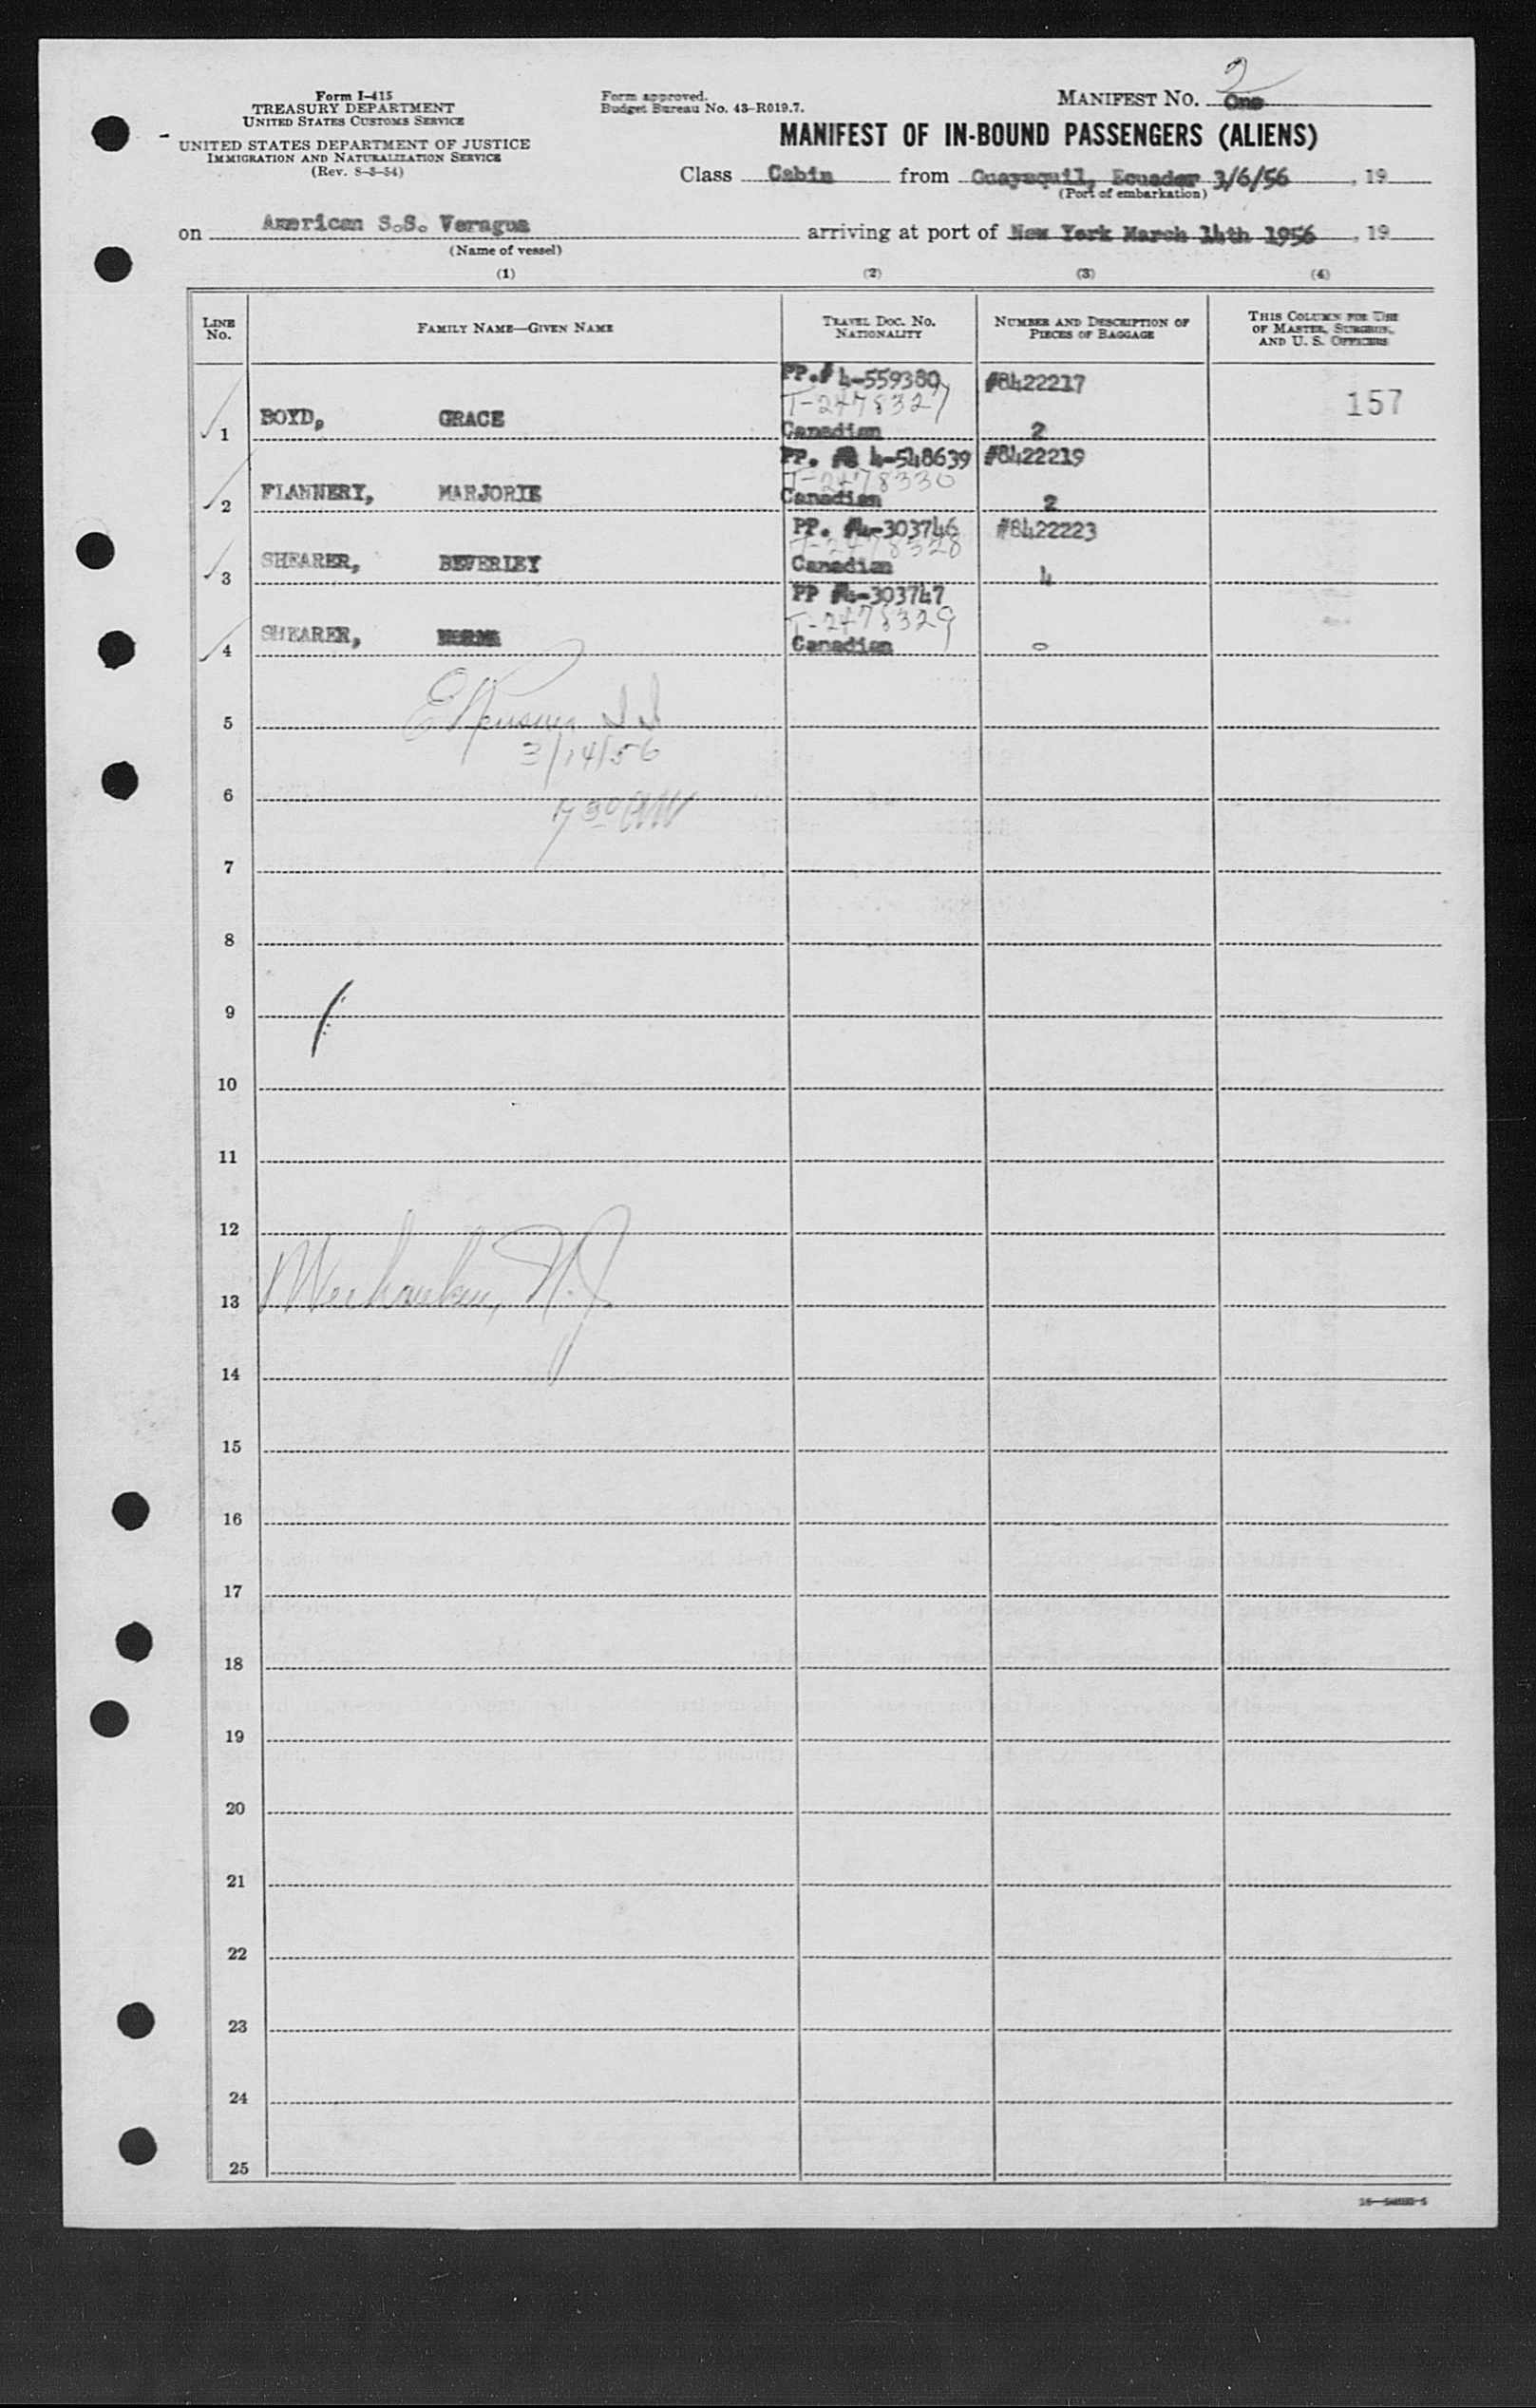 Form I-415
TREASURY DEPARTMENT
UNITED STATES CUSTOMS SERVICE
UNITED STATES DEPARTMENT OF JUSTICE
IMMIGRATION AND NATURALIZATION SERVICE
(Rev. 8-3-54)
Form approved.
Budget Bureau No. 43-R019.7.
2
MANIFEST NO. One
MANIFEST OF IN-BOUND PASSENGERS (ALIENS)
Class Cabin from Guayaquil, Ecuador 3/6/56, 19
(Port of embarkation)
on American S.S. Veragua arriving at port of New York March 14th 1956, 19
(Name of vessel)
(1) (2) (3) (4)
LINE NO. FAMILY NAME—GIVEN NAME TRAVEL DOC. NO. NATIONALITY NUMBER AND DESCRIPTION OF PIECES OF BAGGAGE THIS COLUMN FOR USE OF MASTER, SURGEON, AND U. S. OFFICERS
PP.# 4-559380 #8422217
T-2478327 157
1 BOYD, GRACE Canadian 2
PP. # 4-548639 #8422219
T-2478330
2 FLANNERY, MARJORIE Canadian 2
PP. #4-303746 #8422223
T-2478328
3 SHEARER, BEVERLEY Canadian 4
PP #4-303747
T-2478329
4 SHEARER, NORMA Canadian 0
5
3/14/56
6
7 30 AM
7
8
9
10
11
12
13 Weehawken, N.J.
14
15
16
17
18
19
20
21
22
23
24
25